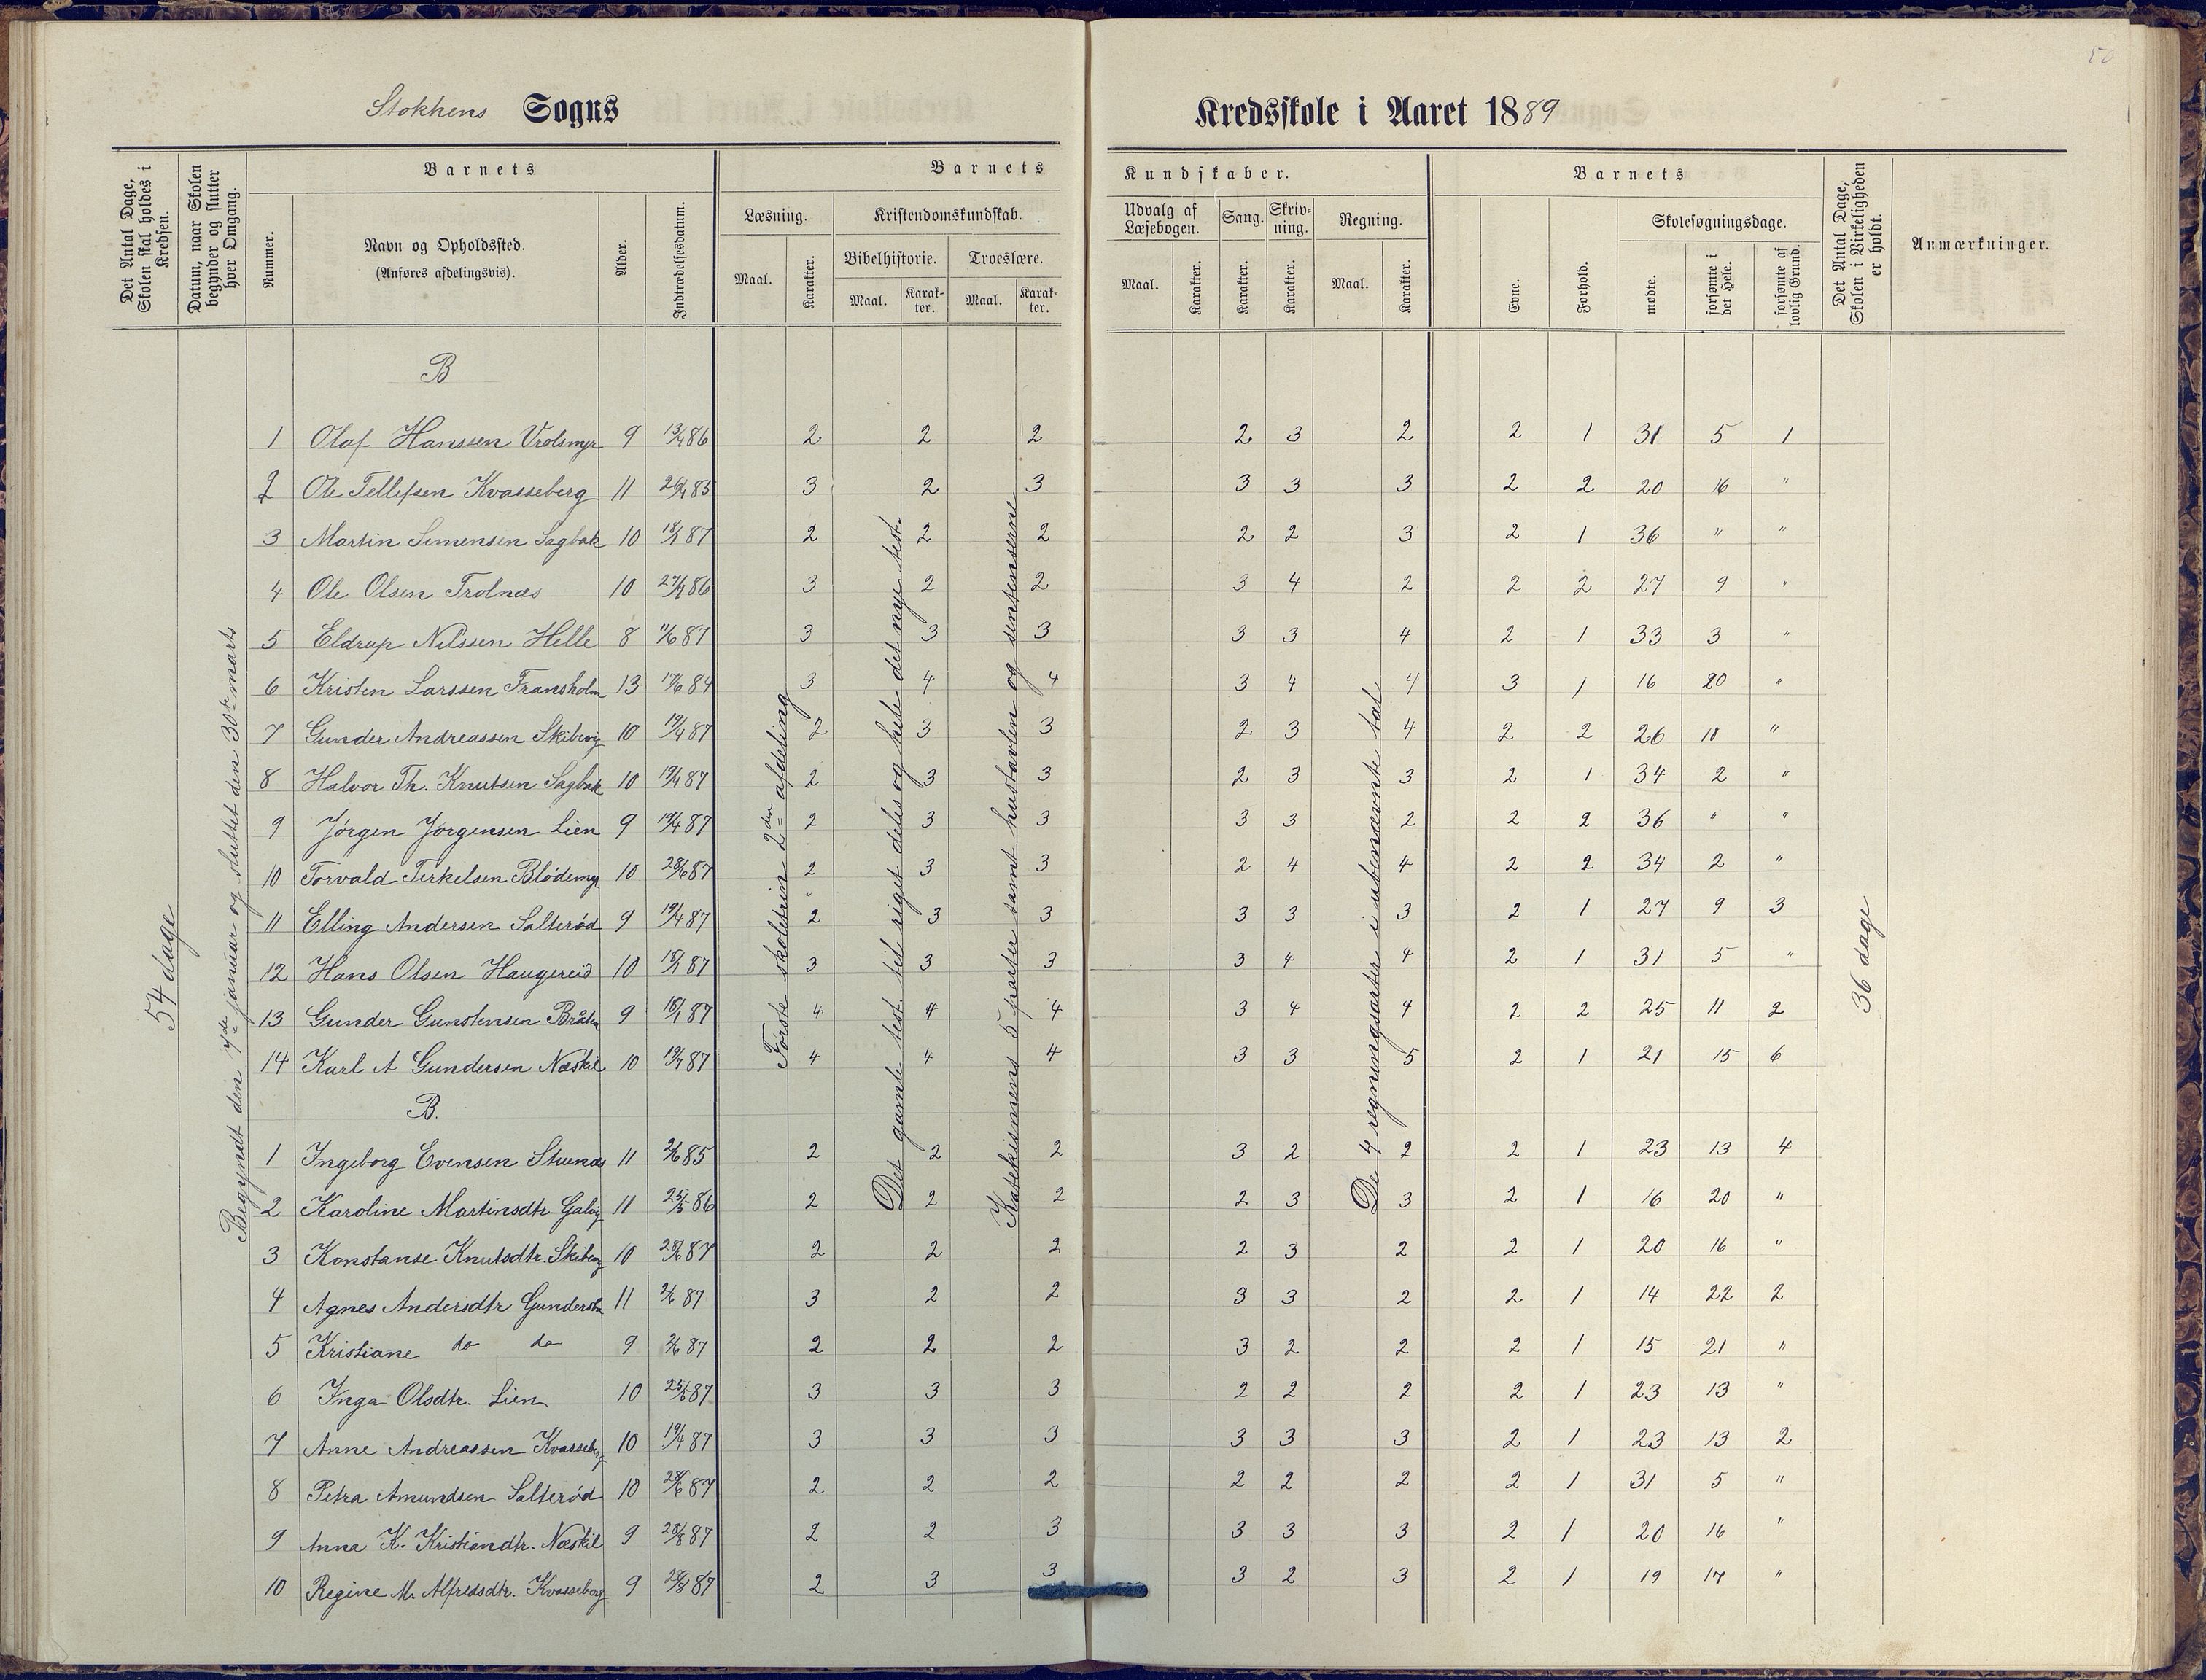 Stokkens Sogns
Kredsskole i Aaret 1889
Det Antal Dage, Skolen skal holdes i Kredsen.
Datum, naar Skolen begynder og slutter hver Omgang.
Barnets
Nummer.
Navn og Opholdssted.
(Anføres afdelingsvis).
Alder.
Indtrædelsesdatum.
Barnets Kundskaber.
Læsning.
Maal. Karakter.
Kristendomskundskab.
Bibelhistorie.
Maal. Karakter.
Troeslære.
Maal. Karakter.
Udvalg af Læsebogen.
Maal. Karakter.
Sang.
Karakter.
Skrivning.
Karakter.
Regning.
Maal. Karakter.
Barnets
Evne.
Forhold.
Skolesøgningsdage.
mødte.
forsømte i det Hele.
forsømte af lovlig Grund.
Det Antal Dage, Skolen i Virkeligheden er holdt.
Anmærkninger.
54 dage
Begyndt den 7de januar og sluttet den 30te marts
Første skoletrin 2den afdeling
Det gamle test. til riget delis og hele det nye test.
Katekismens 5 parter samt hustavlen og sentenserne
De 4 regningsarter i ubenævnte tal
36 dage
B
1 Olaf Hanssen Vrolsmyr 9 13/4 86 2 2 2 2 3 2 2 1 31 5 1
2 Ole Tellefsen Kvasseberg 11 85 3 2 3 3 3 3 2 2 20 16 "
3 Martin Simensen Sagbak 10 87 2 2 2 2 2 3 2 1 36 " "
4 Ole Olsen Trolnæs 10 86 3 2 2 3 4 2 2 2 27 9 "
5 Eldrup Nilssen Helle 8 11/6 87 3 3 3 3 3 4 2 1 33 3 "
6 Kristen Larssen Fransholm 13 84 3 4 4 3 4 4 3 1 16 20 "
7 Gunder Andreassen Skibevig 10 19/4 87 2 3 3 2 3 4 2 2 26 10 "
8 Halvor Th. Knutsen Sagbak 10 19/4 87 2 3 3 2 3 3 2 1 34 2 "
9 Jörgen Jörgensen Lien 9 19/4 87 2 3 3 3 3 2 2 2 36 " "
10 Torvald Terkelsen Blödemyr 10 28/6 87 2 3 3 2 4 4 2 2 34 2 "
11 Elling Andersen Salterød 9 19/4 87 2 3 3 3 3 3 2 1 27 9 3
12 Hans Olsen Haugereid 10 87 3 3 3 3 4 4 2 1 31 5 "
13 Gunder Gunstensen Bråten 9 87 4 4 4 3 4 4 2 2 25 11 2
14 Karl A Gundersen Næskil 10 87 4 4 4 3 3 5 2 1 21 15 6
B.
1 Ingeborg Evensen Stuenæs 11 2/6 85 2 2 2 3 2 2 2 1 23 13 4
2 Karoline Martinsdtr. Galvig 11 25/5 86 2 2 2 2 3 3 2 1 16 20 "
3 Konstanse Knutsdtr. Skibevig 10 28/6 87 2 2 2 2 3 2 2 1 20 16 "
4 Agnes Andersdtr Gunderstr 11 2/6 87 3 2 2 3 3 2 2 1 14 22 2
5 Kristiane do do 9 2/6 87 2 2 2 3 2 2 2 1 15 21 "
6 Inga Olsdtr. Lien 10 87 3 3 3 2 2 2 2 1 23 13 "
7 Anne Andreassen Kvasseberg 10 19/4 87 3 3 3 3 3 3 2 1 23 13 2
8 Petra Amundsen Salterød 10 28/6 87 2 2 2 2 2 2 2 1 31 5 "
9 Anna K. Kristiandtr. Næskil 9 28/8 87 2 2 3 3 3 3 2 1 20 16 "
10 Regine M. Alfredsdtr. Kvasseberg 9 28/8 87 2 3 3 3 2 3 2 1 19 17 "